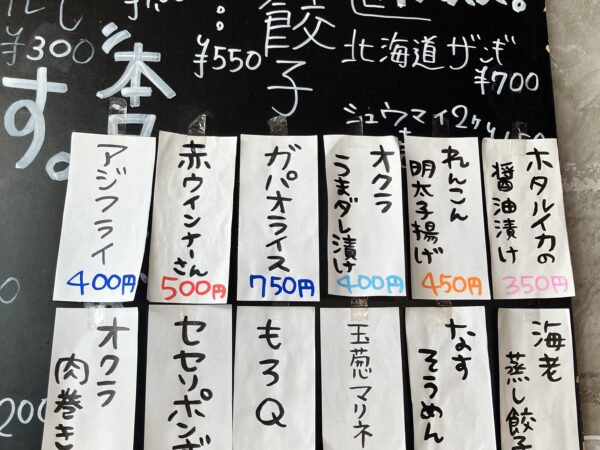 餃子
¥550
北海道ザンギ
¥700
¥300
す。
ホタルイカの
醤油漬け
350円
れんこん
明太子揚げ
450円
オクラ
うまダレ漬け
400円
ガパオライス
750円
赤ウインナーさん
500円
アジフライ
400円
海老
蒸し餃子
なす
そうめん
玉葱マリネ
もろQ
セセリポンズ
オクラ
肉巻き